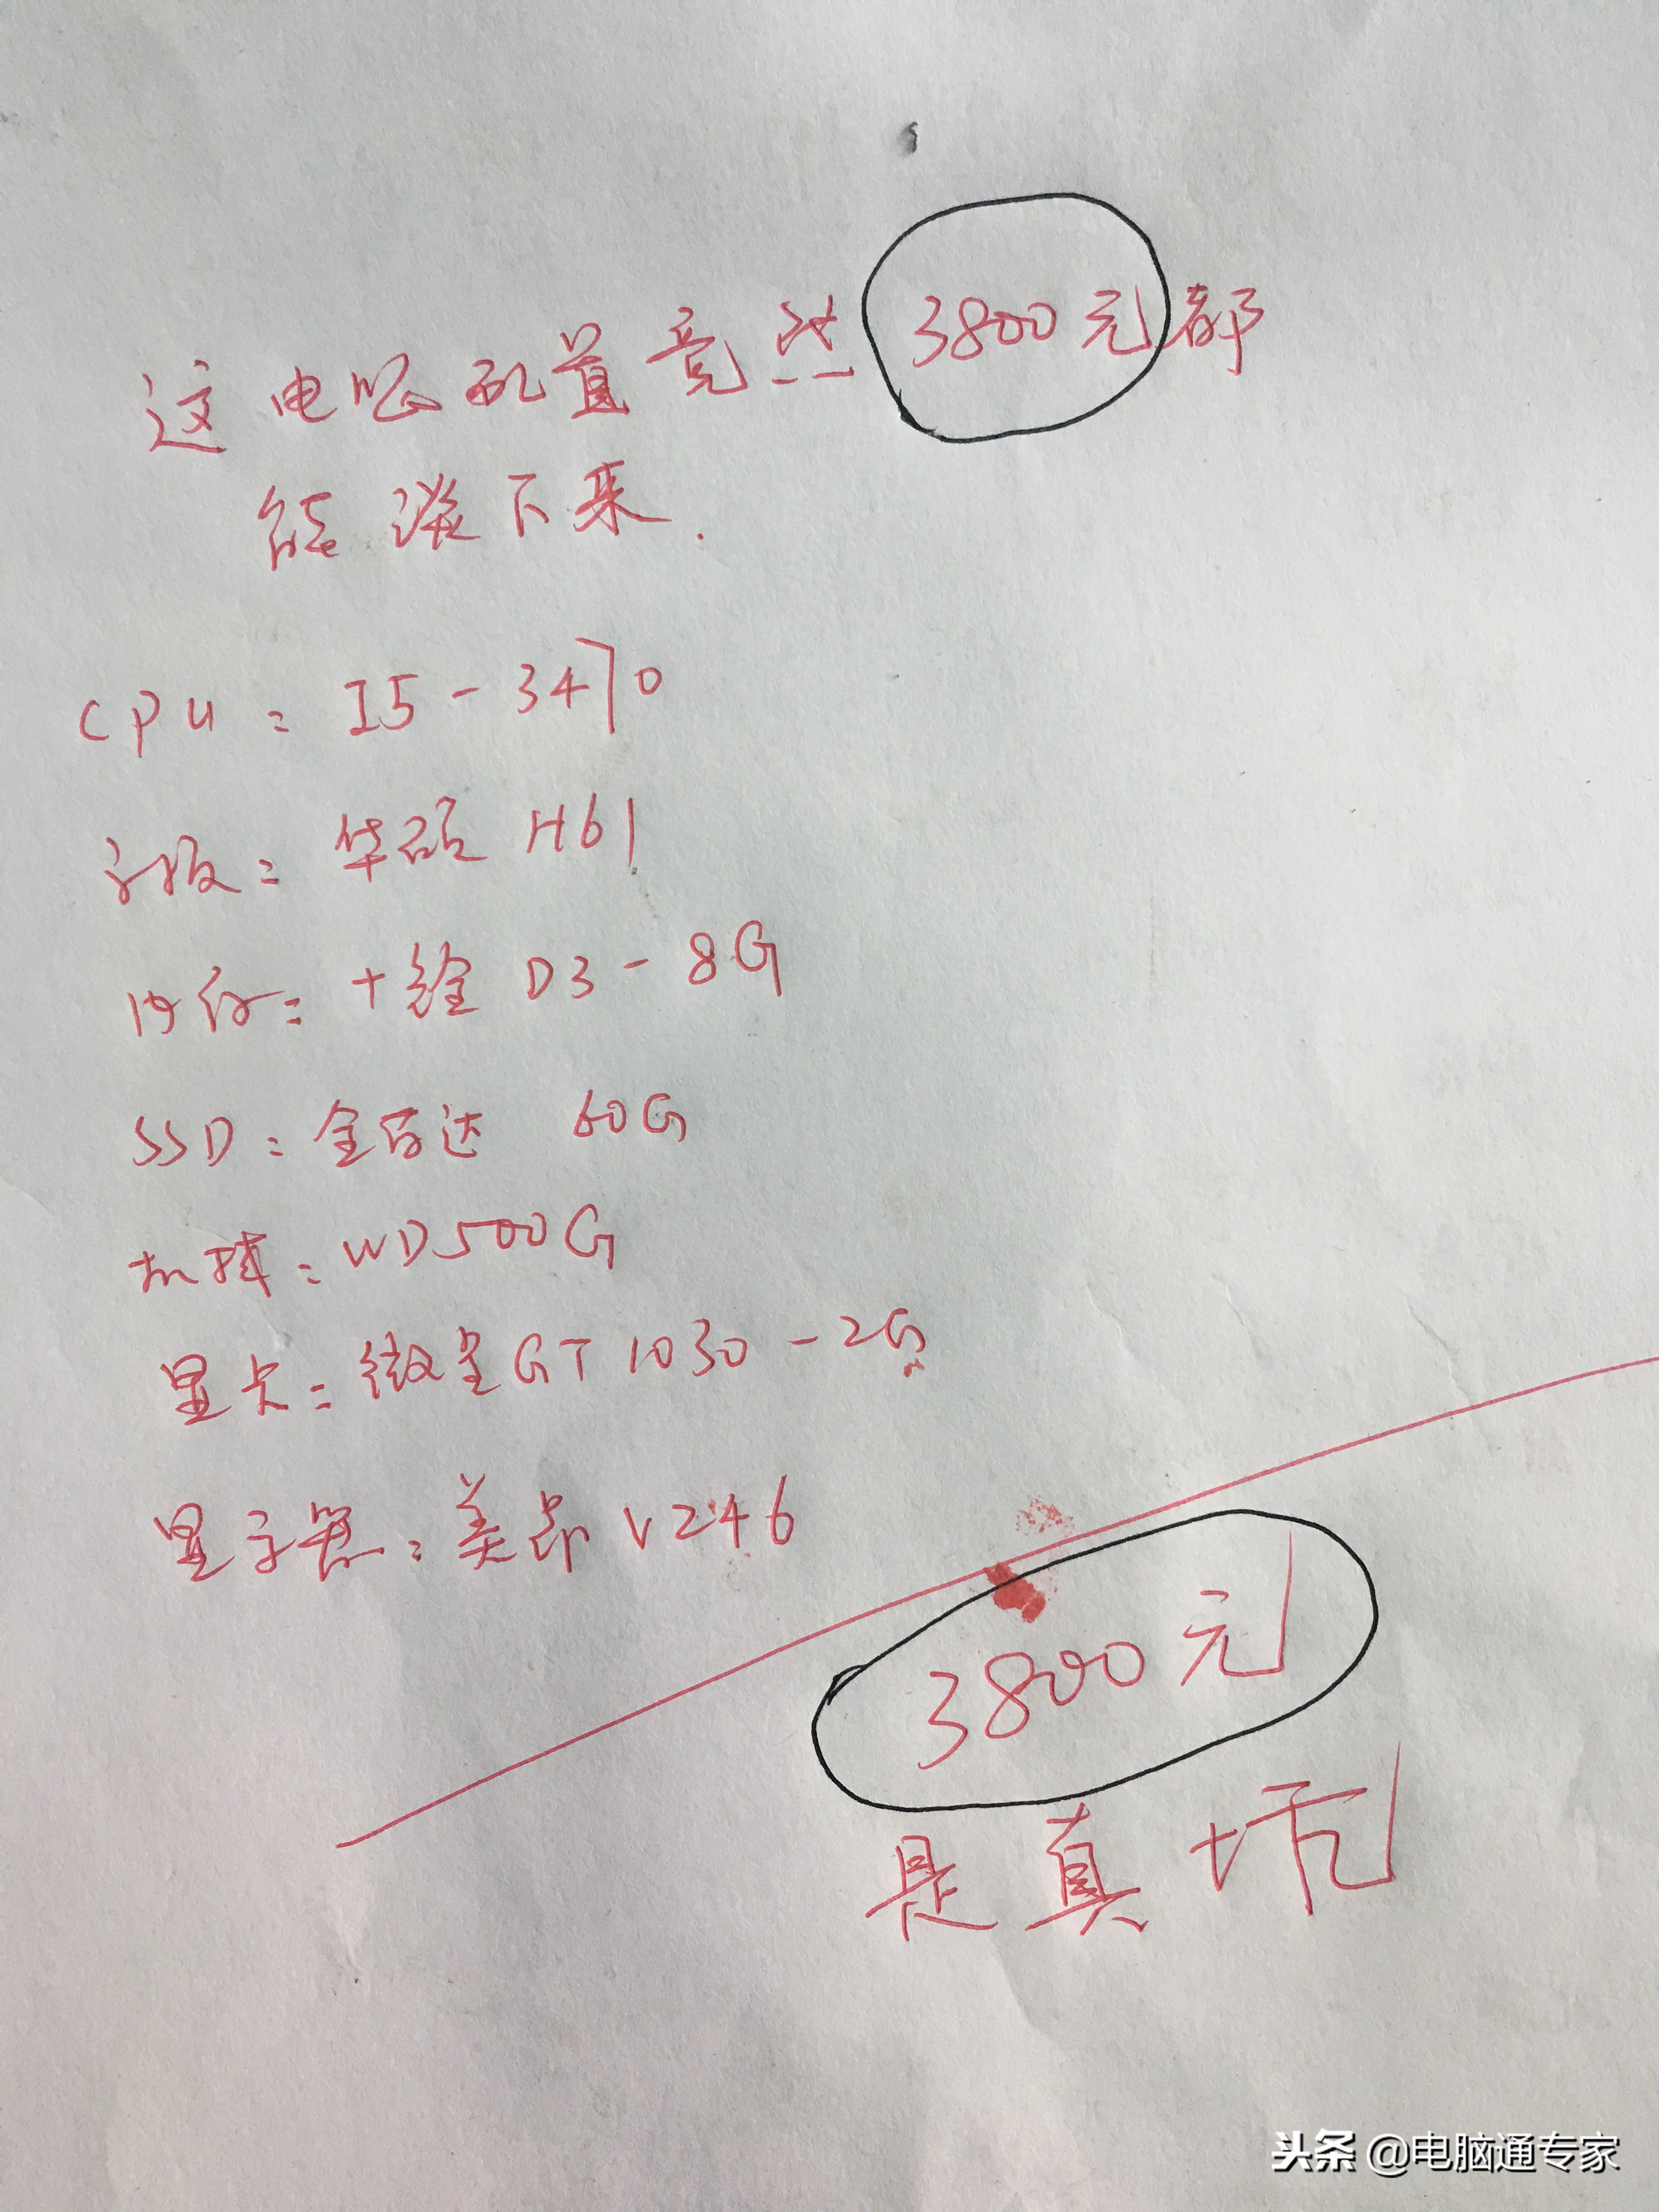 这电脑配置竟然3800元都
能谈下来.
CPU: I5-3470
主板: 华硕 H61
内存: 十铨 D3-8G
SSD: 金百达 60G
机械: WD500G
显卡: 微星GT1030-2G
显示器: 美昂 V246
3800元
是真坑
头条 @电脑通专家